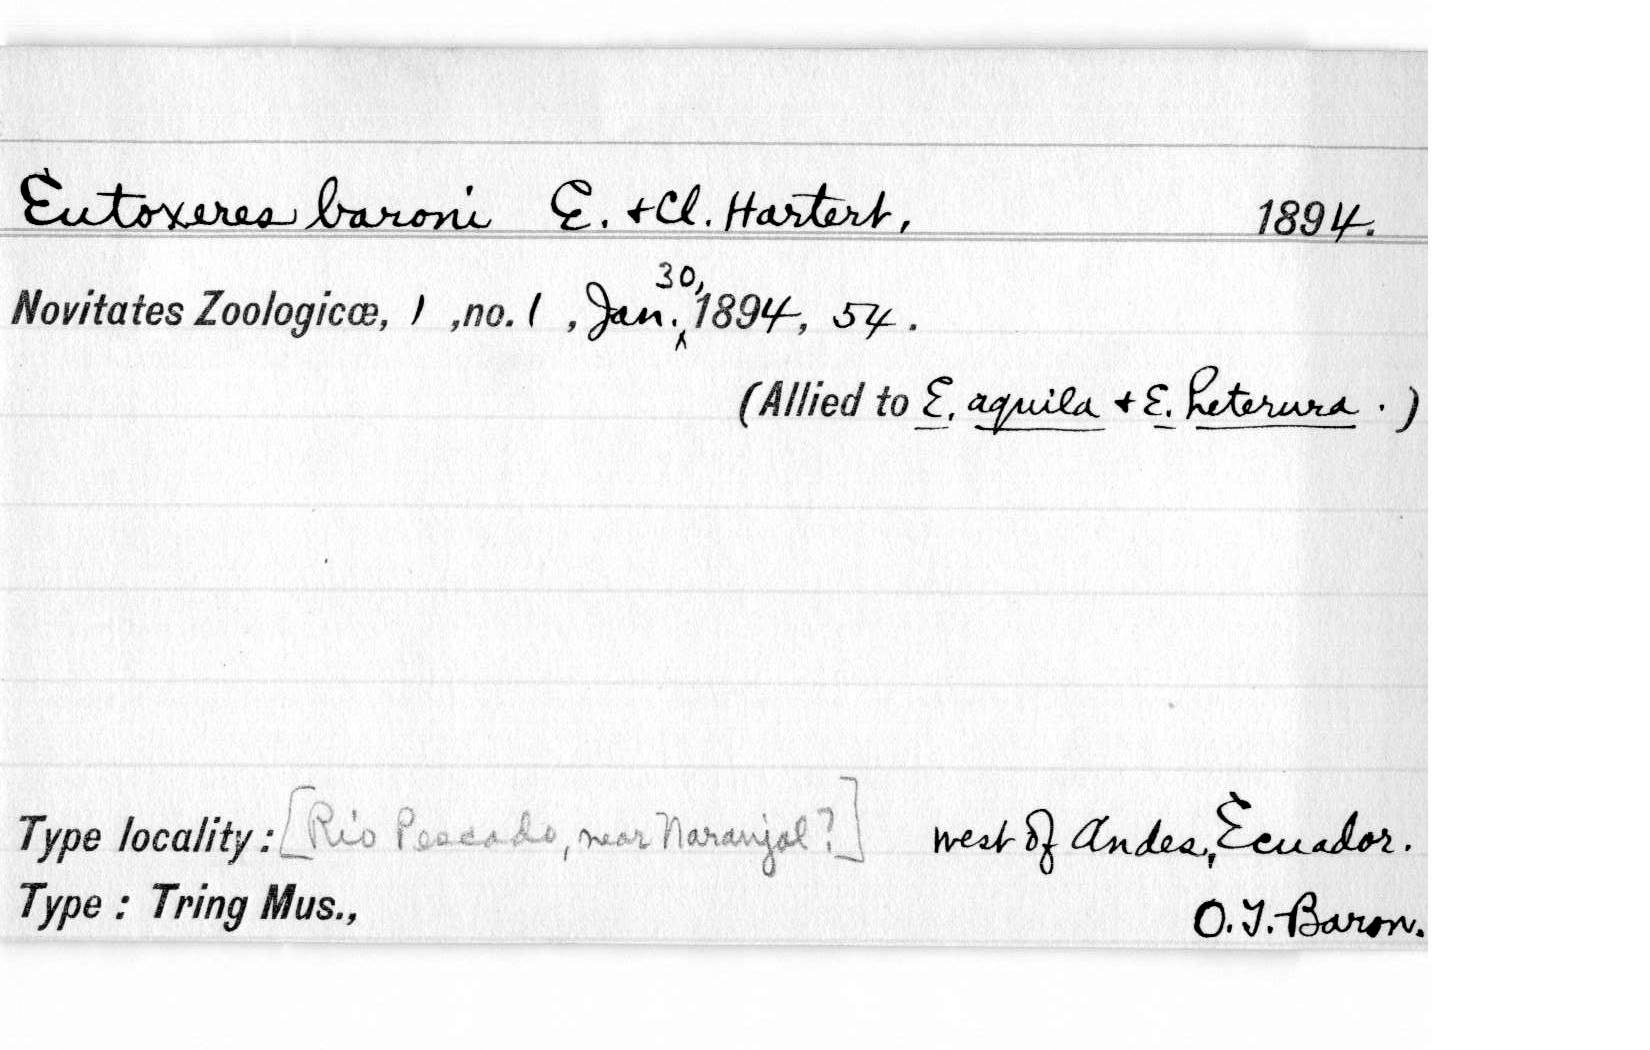 Eutoxeres baroni E. + Cl. Hartert, 1894.
Novitates Zoologicæ, 1, no. 1, Jan. 30, 1894, 54.
(Allied to E. aquila + E. heterura.)
Type locality: [Rio Pescado, near Naranjal?] west of Andes, Ecuador.
Type: Tring Mus., O. T. Baron.